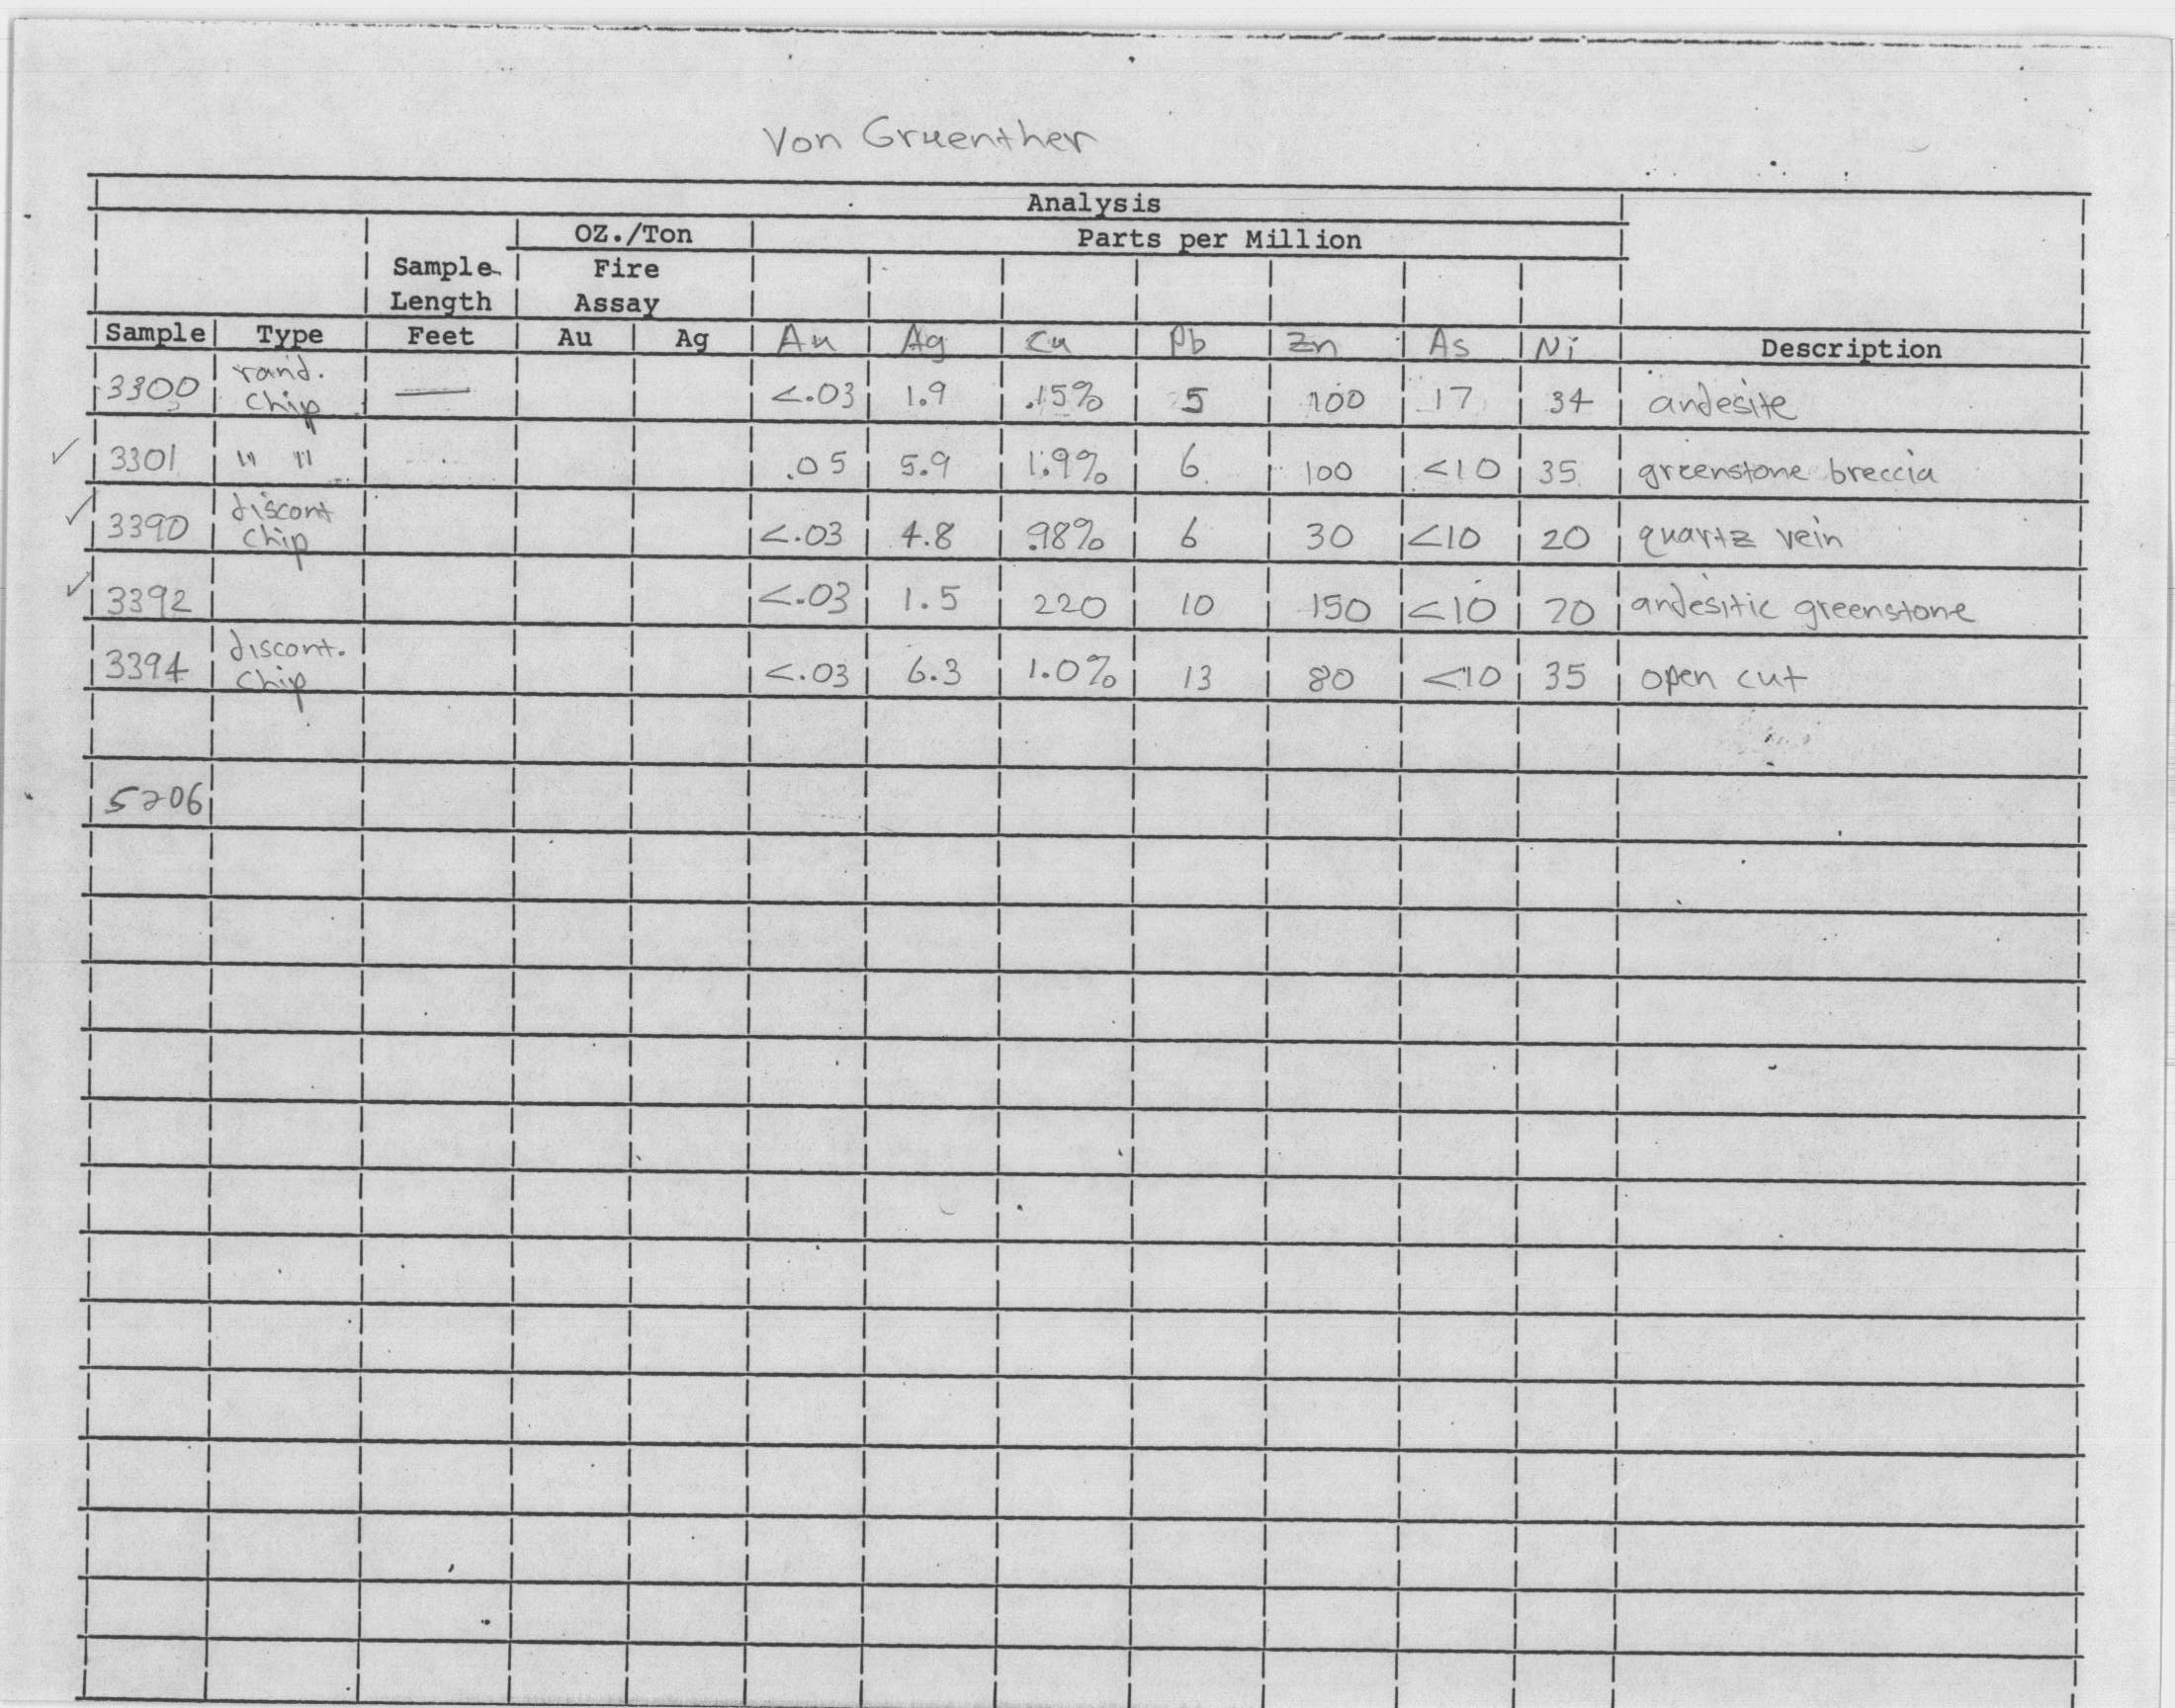 Von Gruenther
Analysis
OZ./Ton Parts per Million
Sample Fire
Length Assay
Sample Type Feet Au Ag Au Ag Cu Pb Zn As Ni Description
3300 rand. chip — <.03 1.9 .15% 5 100 17 34 andesite
✓ 3301 " " .05 5.9 1.9% 6 100 <10 35 greenstone breccia
✓ 3390 discont chip <.03 4.8 .98% 6 30 <10 20 quartz vein
✓ 3392 <.03 1.5 220 10 150 <10 20 andesitic greenstone
3394 discont. chip <.03 6.3 1.0% 13 80 <10 35 open cut
5206